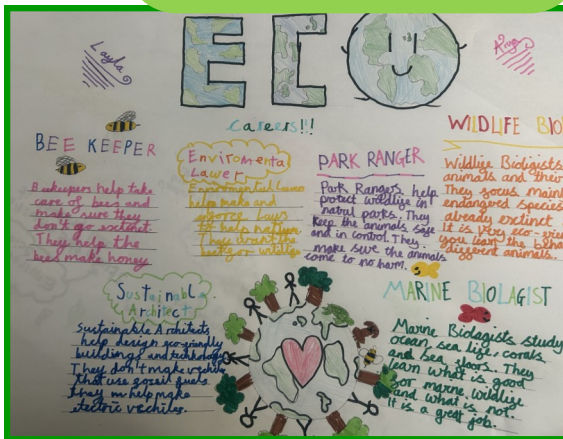 ECO
Layla
careers!!!
BEE KEEPER
Beekeepers help take
care of bees and
make sure they
don't go extinct.
They help the
bees make honey.
Enviromental
Lawer
Enviromental Lawers
help make and
enforce laws
to help nature.
They want the
best for wildlife
PARK RANGER
Park Rangers help
protect wildlife in
natral parks. They
Keep the animals safe
and in control. They
make sure the animals
come to no harm.
WILDLIFE BIO
Wildlife Bioligists
animals and their
They focus main
endangered species
already extinct
It is very eco-
you learn the beha
different animals.
Sustainable
Architect
Sustainable Architects
help design eco-friendly
buildings and technology
They don't make vechiles
that use fossil fuels.
they help make
electric vechiles.
MARINE BIOLAGIST
Marine Biolagists study
ocean, sea life, corals
and sea floors. They
learn what is good
for marine wildlife
and what is not.
It is a great job.